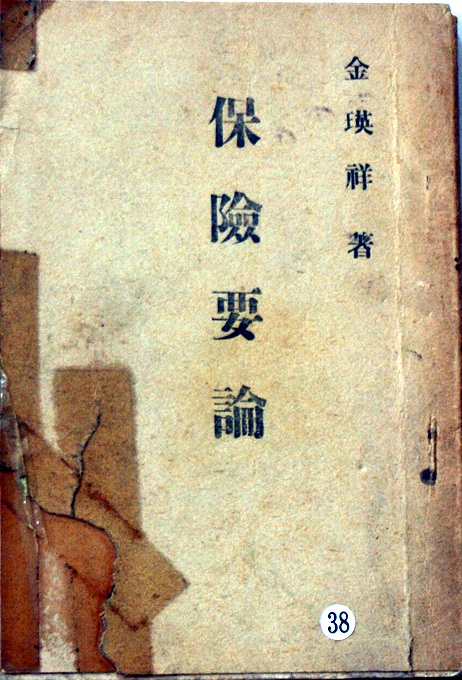 金瑛祥著
保險要論
38